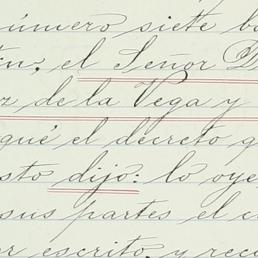 número siete ba
en, el Señor D
z de la Vega y
qué el decreto q
sto dijo: lo oye
sus partes el c
or escrito, y reco